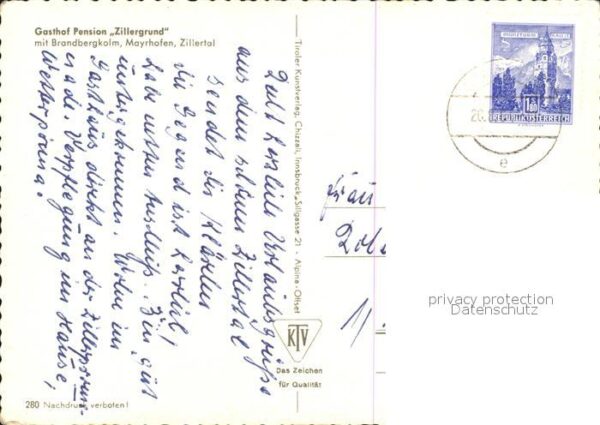 Gasthof Pension „Zillergrund"
mit Brandbergkolm, Mayrhofen, Zillertal
Recht herzliche Urlaubsgrüße
aus dem schönen Zillertal
sendet dir
die Gegend ist herrlich,
habe netten Anschluß. Bin gut
untergekommen. Wohne im
Gasthaus direkt an der Zillerprom-
enade. Verpflegung im Hause,
Wetter prima!
Tiroler Kunstverlag, Chizzali, Innsbruck, Sillgasse 21 - Alpina-Offset
KTV
Das Zeichen
für Qualität
280 Nachdruck verboten!
1.80
REPUBLIK ÖSTERREICH
20.
e
Frau
privacy protection
Datenschutz